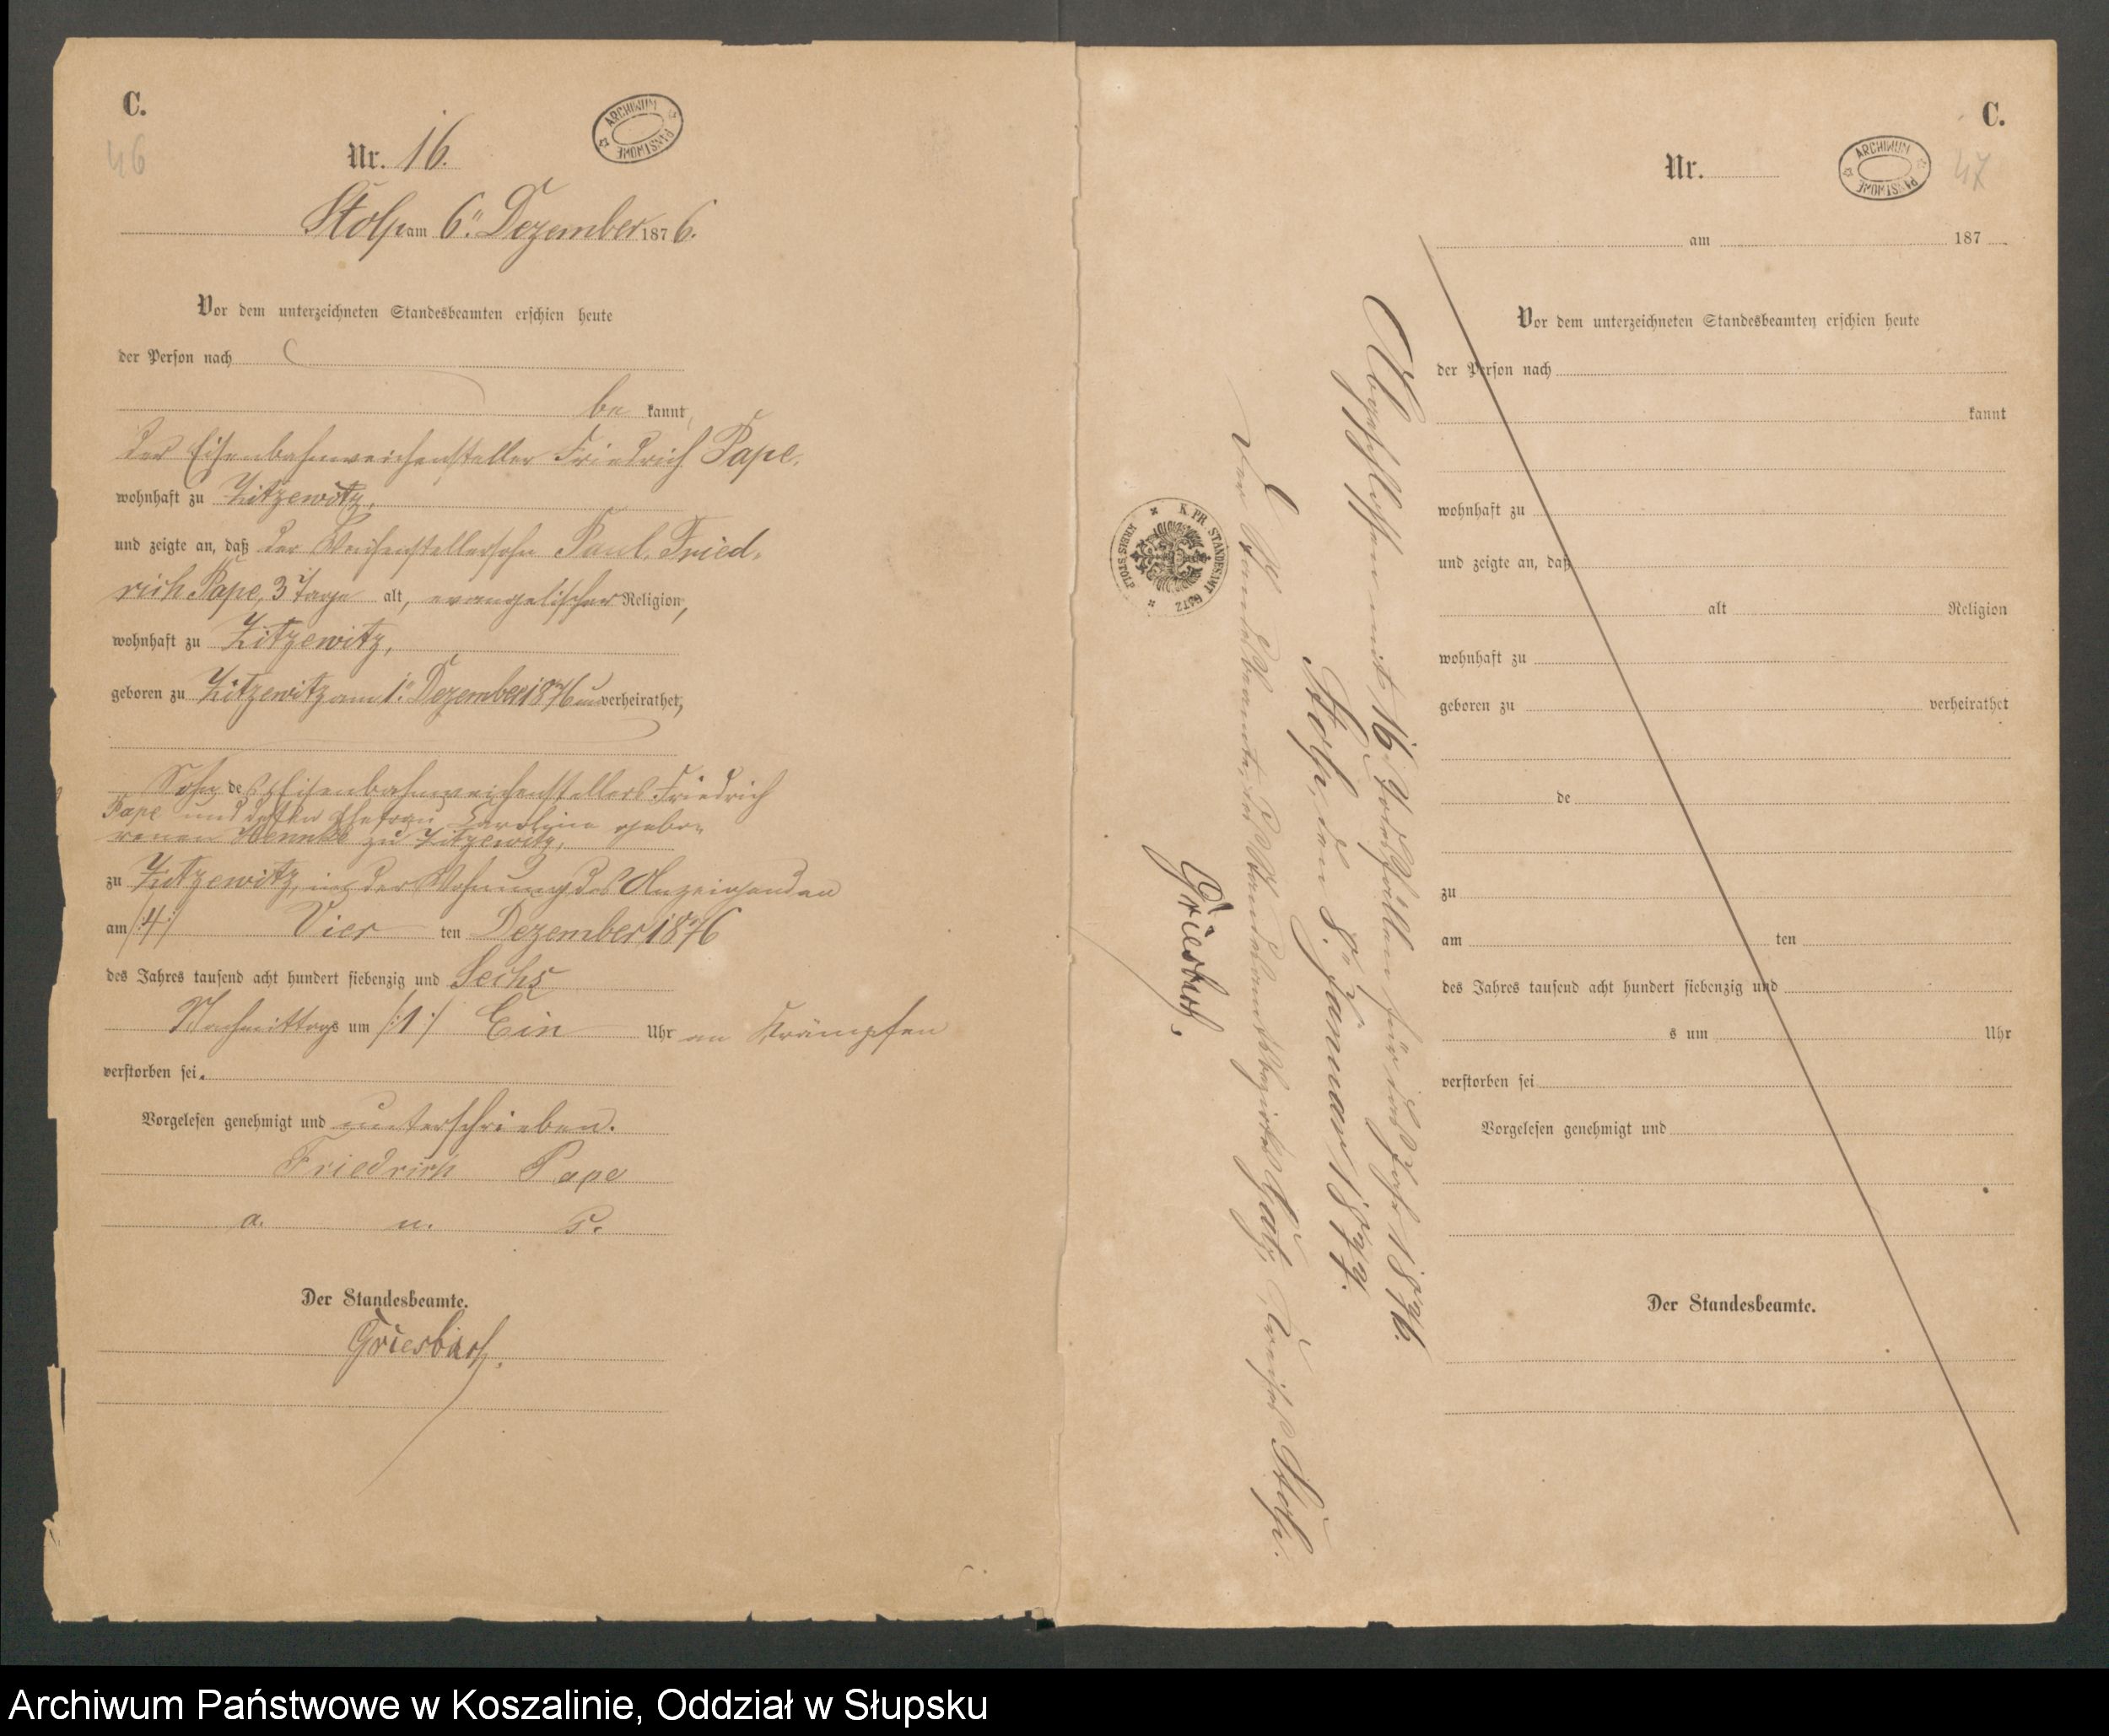 C.
46
ARCHIWUM PAŃSTWOWE
Nr. 16.
Stolp am 6ten Dezember 1876.
Vor dem unterzeichneten Standesbeamten erschien heute
der Person nach
bekannt,
der Eisenbahnweichensteller Friedrich Pape,
wohnhaft zu Zitzewitz,
und zeigte an, daß der Weichenstellersohn Paul, Fried-
rich Pape, 3 Tage alt, evangelischer Religion,
wohnhaft zu Zitzewitz,
geboren zu Zitzewitz am 1ten Dezember 1876 unverheirathet,
Sohn des Eisenbahnweichenstellers Friedrich
Pape und dessen Ehefrau Caroline gebo-
renen zu Zitzewitz,
zu Zitzewitz, in der Wohnung des Anzeigenden
am /:4:/ Vier ten Dezember 1876
des Jahres tausend acht hundert siebenzig und Sechs
Nachmittags um /:1:/ Ein Uhr an Krämpfen
verstorben sei.
Vorgelesen genehmigt und unterschrieben.
Friedrich Pape
a. u. s.
Der Standesbeamte.
Griesbach.
Abgeschlossen mit 16 Todesfällen für das Jahr 1876.
Stolp, den 8ten Januar 1877.
Der Standesbeamte des Standesamtsbezirks Gatz, Kreises Stolp.
Griesbach.
K. PR. STANDESAMT GATZ
KREIS STOLP
C.
47
ARCHIWUM PAŃSTWOWE
Nr.
am 187
Vor dem unterzeichneten Standesbeamten erschien heute
der Person nach
kannt
wohnhaft zu
und zeigte an, daß
alt Religion
wohnhaft zu
geboren zu verheirathet
de
zu
am ten
des Jahres tausend acht hundert siebenzig und
s um Uhr
verstorben sei
Vorgelesen genehmigt und
Der Standesbeamte.
Archiwum Państwowe w Koszalinie, Oddział w Słupsku